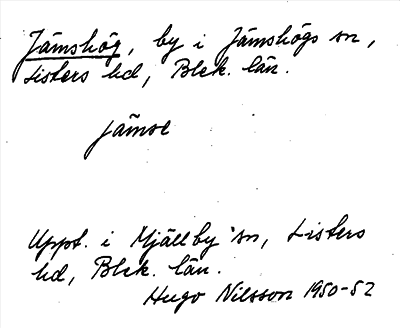 Jämshög, by i Jämshögs sn,
Listers hd, Blek. län.
jämse
Uppt. i Mjällby sn, Listers
hd, Blek. län.
Hugo Nilsson 1950-52